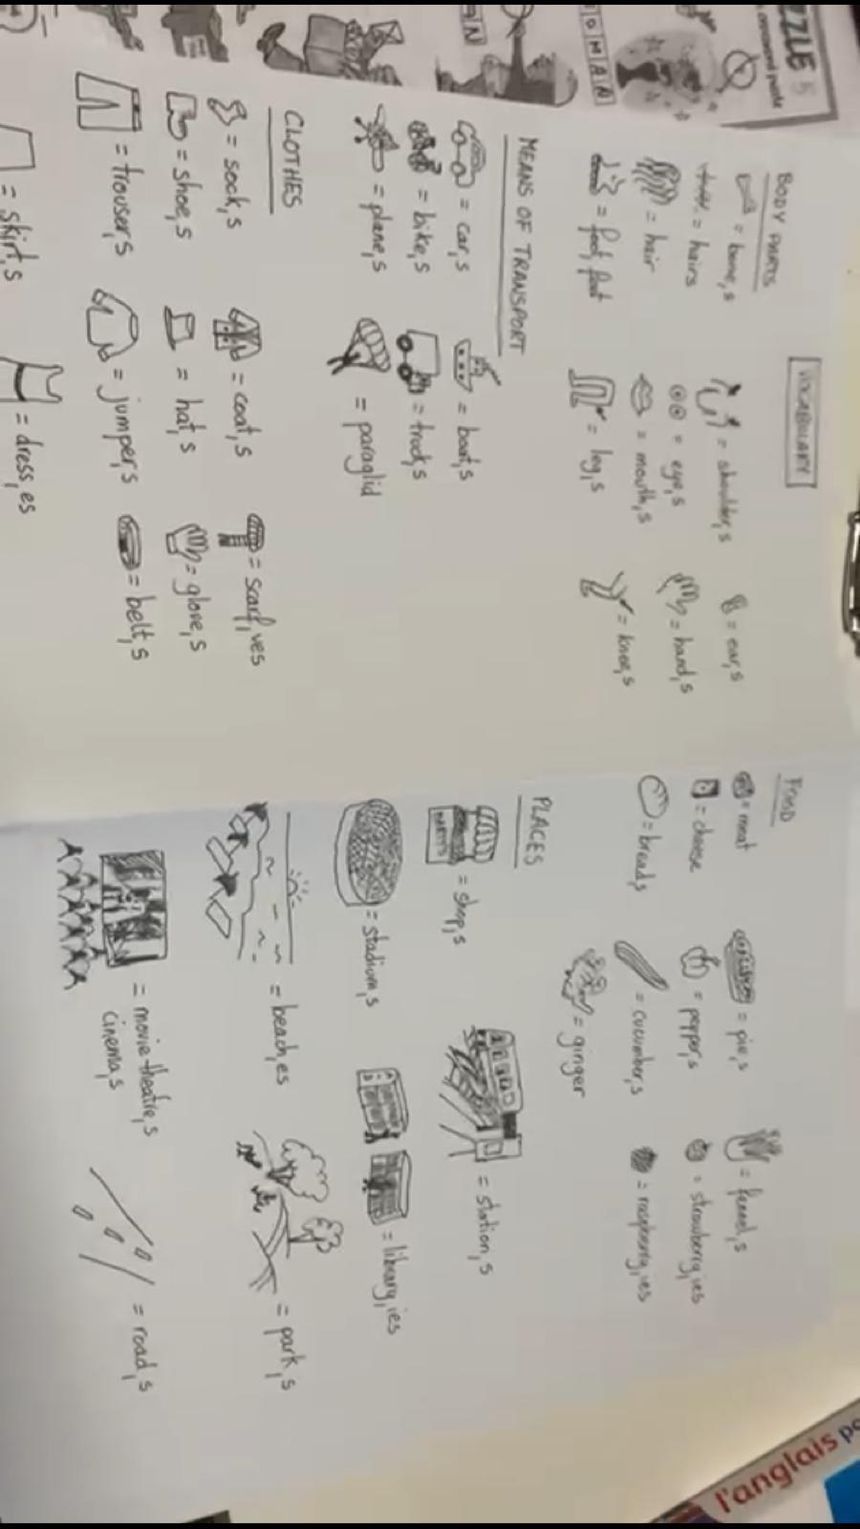 ZZLE 5
OMAN
VOCABULARY
BODY PARTS
= bone,s
= shoulder,s
= ear,s
= hairs
= eye,s
= hand,s
= hair
= mouth,s
= knee,s
= foot, feet
= leg,s
MEANS OF TRANSPORT
= car,s
= boat,s
= bike,s
= truck,s
= plane,s
= paraglid
CLOTHES
= sock,s
= coat,s
= scarf,ves
= shoe,s
= hat,s
= glove,s
= trouser,s
= jumper,s
= belt,s
= skirt,s
= dress,es
FOOD
= meat
= pie,s
= fennel,s
= cheese
= pepper,s
= strawberry,ies
= bread,s
= cucumber,s
= raspberry,ies
= ginger
PLACES
PARTY
= shop,s
= station,s
= stadium,s
= library,ies
= beach,es
= park,s
= movie theatre,s
cinema,s
= road,s
l'anglais